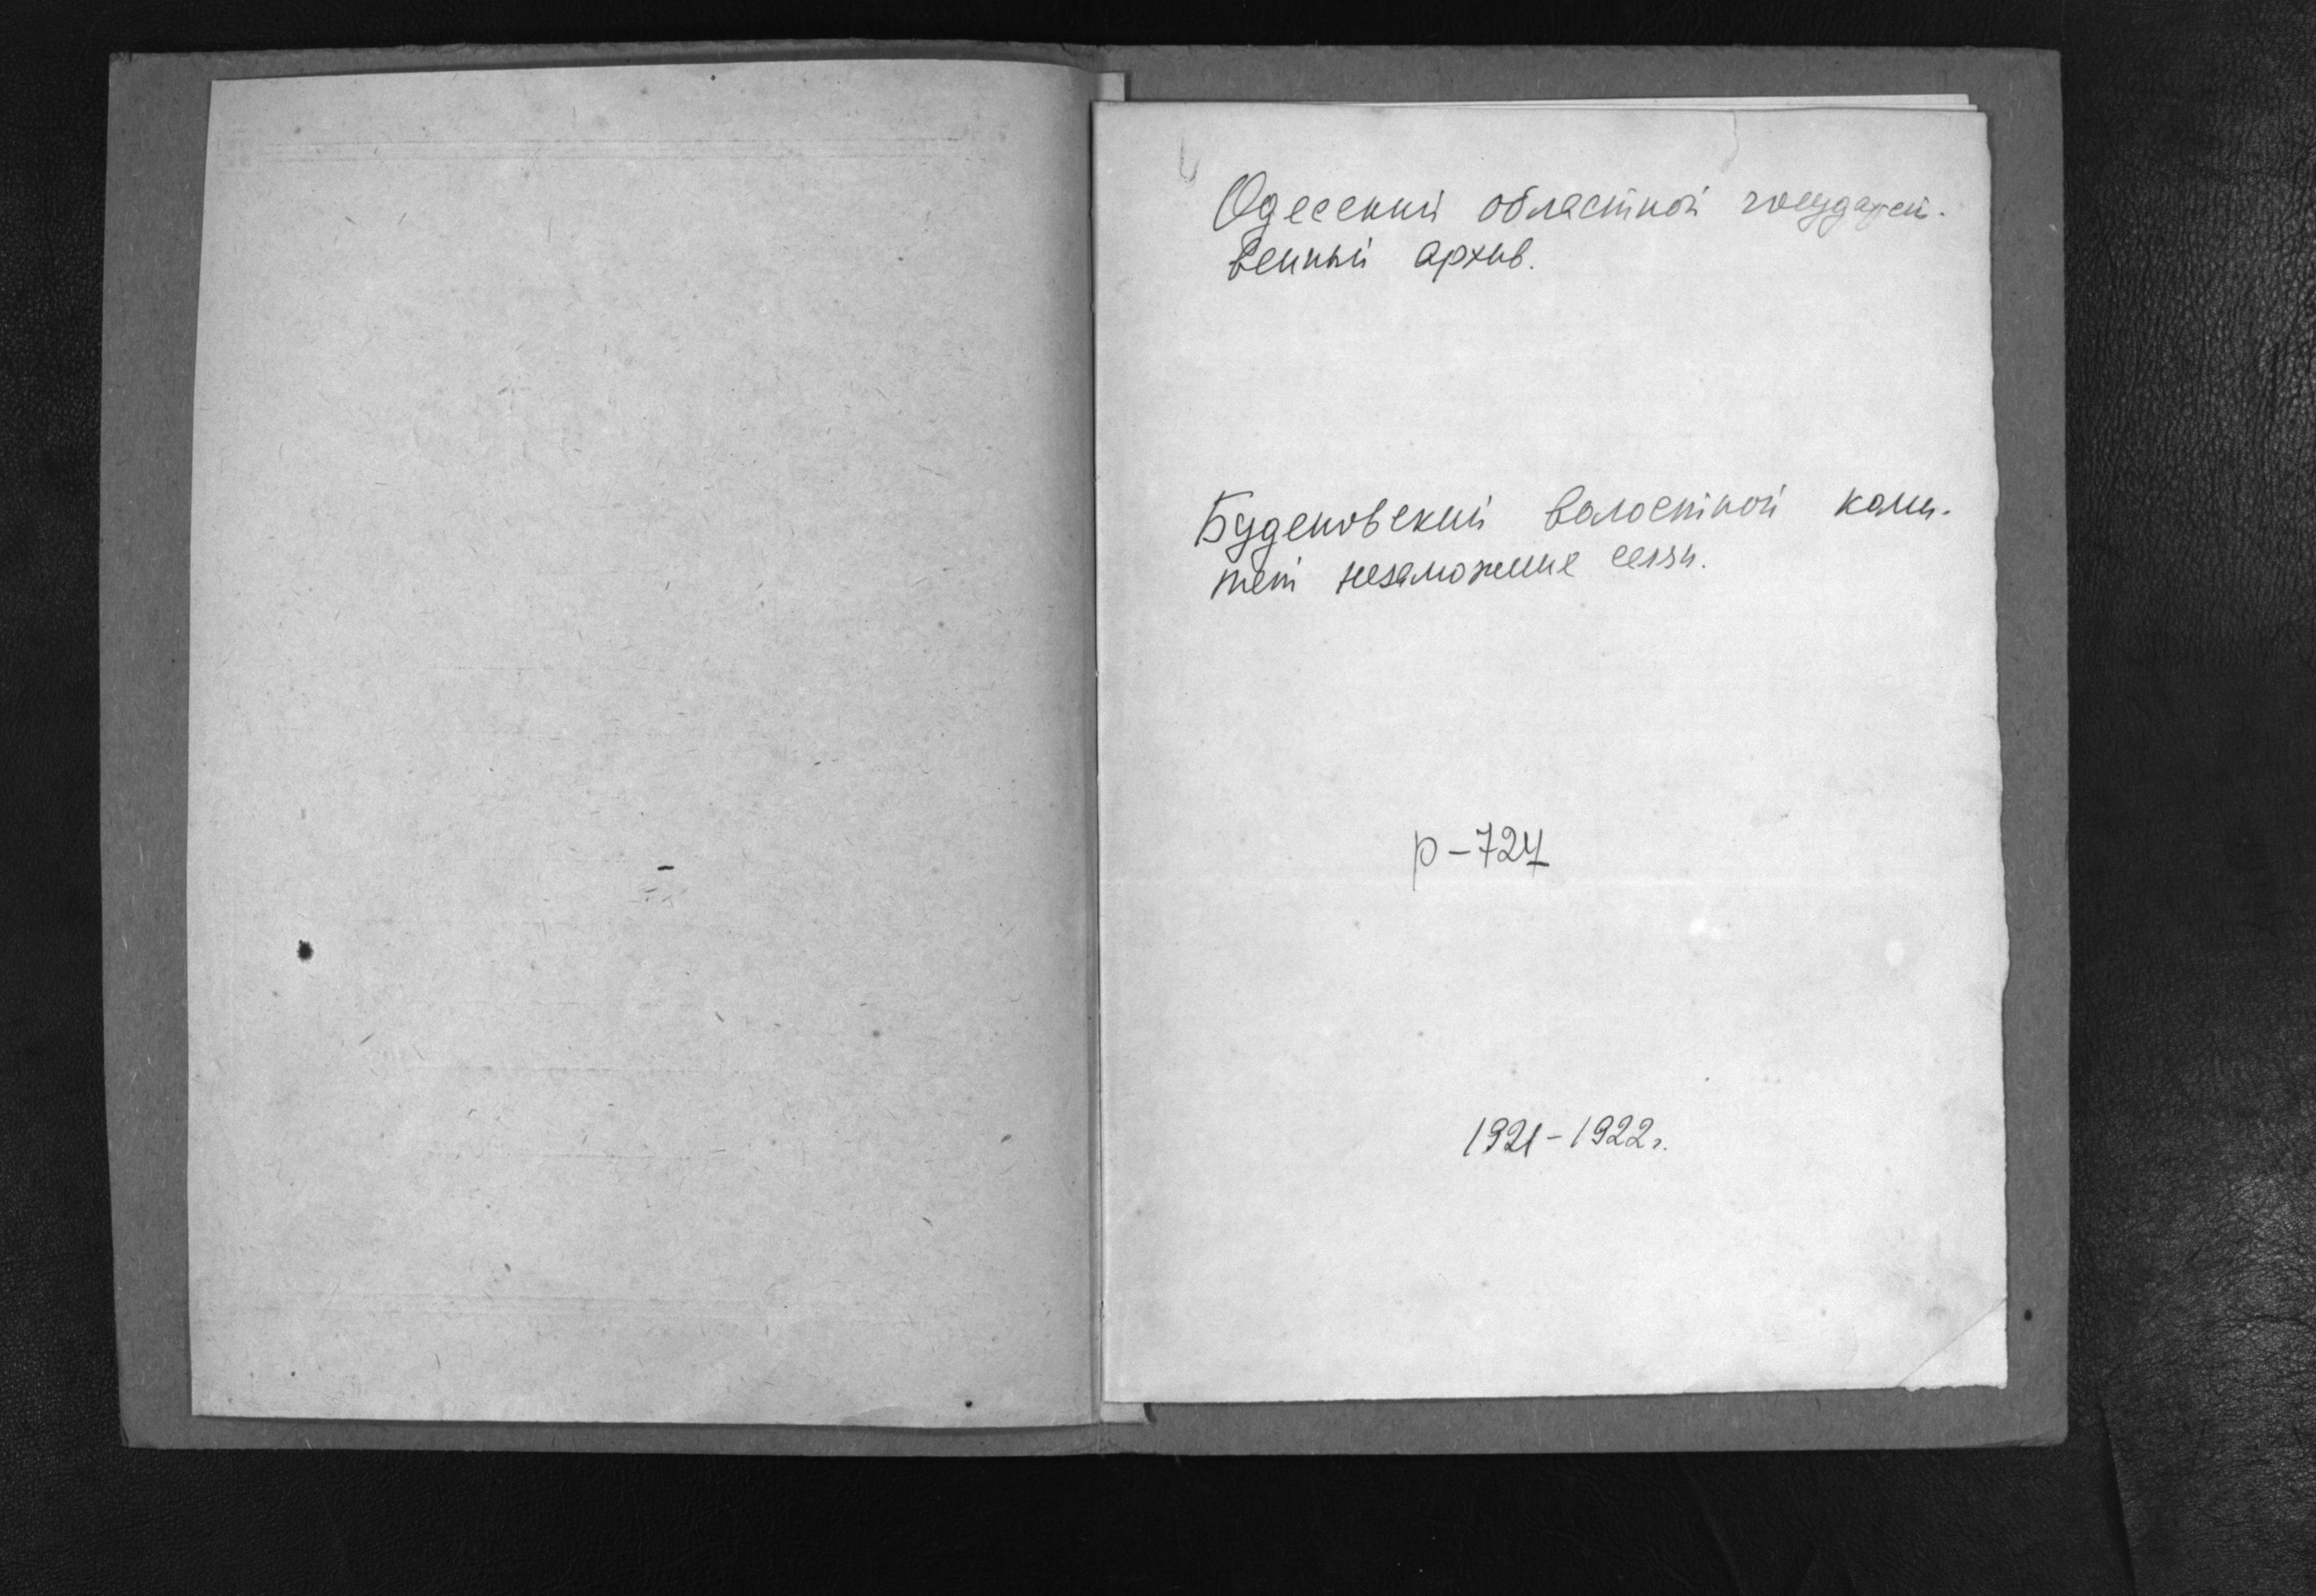 Одесский областной государст-
венный архив.
Буденовский волостной коми-
тет незаможних селян.
р-724
1921-1922г.